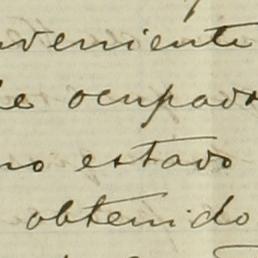 nveniente
he ocupado
no estado
obtenido